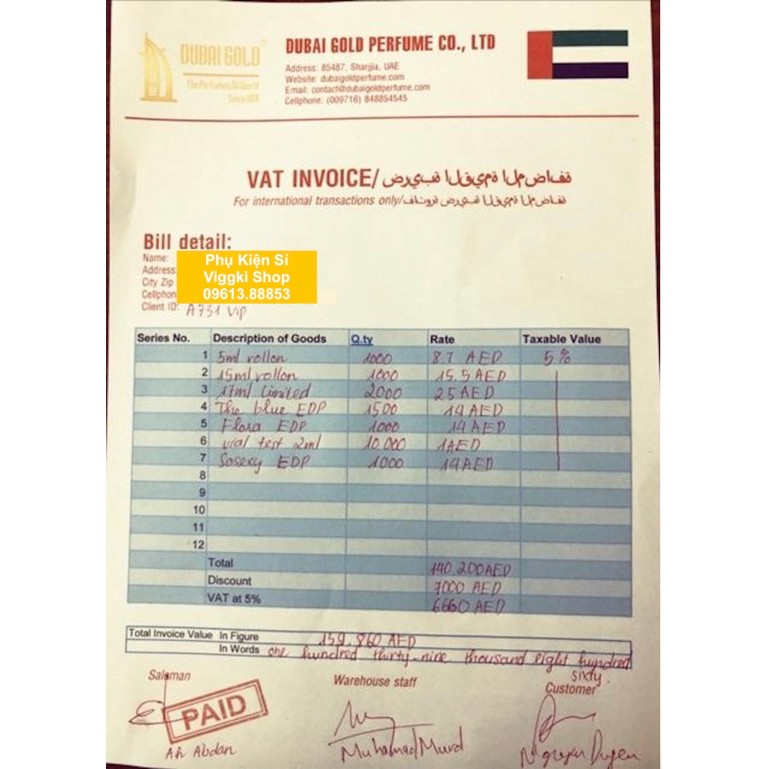 DUBAI GOLD
The Perfumes Oil World
Since 1980
DUBAI GOLD PERFUME CO., LTD
Address: 85487, Sharjjia, UAE
Website: dubaigoldperfume.com
Email: contact@dubaigoldperfume.com
Cellphone: (009716) 848854545
VAT INVOICE/ ةفاضملا ةميقلا ةبيرض
For international transactions only/ ةفاضملا ةميقلا ةبيرض ةروتاف
Bill detail:
Name:
Address:
City Zip
Cellphon
Client ID: A731 Vip
Phụ Kiện Si
Viggki Shop
09613.88853
Series No. Description of Goods Q.ty Rate Taxable Value
1 5ml rollon 1000 8.7 AED 5%
2 15ml rollon 1000 15.5 AED
3 17ml limited 2000 25 AED
4 The blue EDP 1500 14 AED
5 Flora EDP 1000 14 AED
6 vial test 2ml 10.000 1AED
7 Sosexy EDP 1000 14 AED
8
9
10
11
12
Total 140.200 AED
Discount 7000 AED
VAT at 5% 6660 AED
Total Invoice Value In Figure 139.860 AED
In Words one hundred thirty-nine thousand eight hundred sixty.
Salaman
Warehouse staff
Customer
PAID
Ah Abdan
Muhamad Murd
Nguyen Duyen